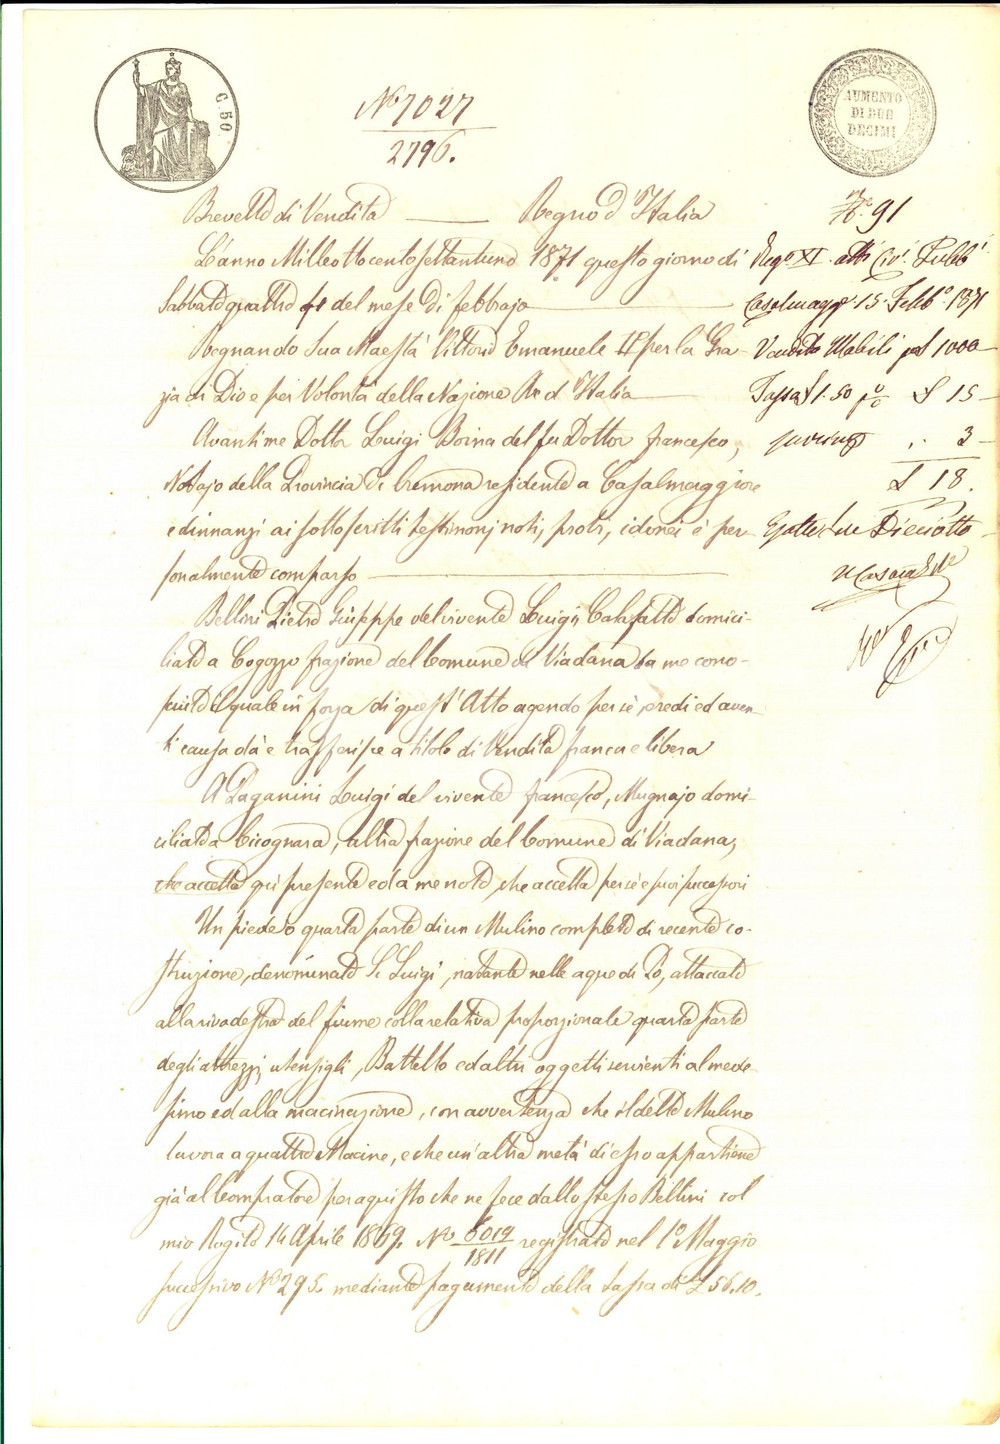 C. 50.
AUMENTO
DI DUE
DECIMI
N° 7027
2796.
Brevetto di Vendita — Regno d'Italia
L'anno Mille ottocento settantuno 1871 questo giorno di
Sabbato quattro 4 del mese di febbrajo
Regnando Sua Maestà Vittorio Emanuele II° per la Gra-
zia di Dio e per Volontà della Nazione Re d'Italia
Avanti me Dottor Luigi Boina del fu Dottor Francesco,
Notajo della Provincia di Cremona residente a Casalmaggiore
e dinnanzi ai sottoscritti testimonj noti, probi, idonei è per-
sonalmente comparso
Bellini Pietro Giuseppe del vivente Luigi, Calafatto domici-
liato a Cogozzo frazione del Comune di Viadana da me cono-
sciuto il quale in forza di quest'Atto agendo per sè, eredi ed aven-
ti causa dà e trasferisce a titolo di Vendita franca e libera
A Paganini Luigi del vivente Francesco, Mugnajo domi-
ciliato a Cicognara, altra frazione del Comune di Viadana,
che accetta qui presente ed a me noto, che accetta per sè e suoi successori
Un piede o quarta parte di un Mulino completo di recente co-
struzione, denominato S. Luigi, natante nelle acque di Po, attaccato
alla riva destra del fiume colla relativa proporzionale quarta parte
degli attrezzi, utensigli, Battello ed altri oggetti servienti al mede-
simo ed alla macinazione, con avvertenza che il detto Mulino
lavora a quattro Macine, e che un'altra metà di esso appartiene
già al Compratore per acquisto che ne fece dallo stesso Bellini col
mio Rogito 14 Aprile 1869. N° 6019/1811 registrato nel 1° Maggio
successivo N° 295. mediante pagamento della tassa di £ 56.10.
N° 91
Reg° XI. atti Civ. Pubb.
Casalmagg. 15. Febb° 1871
Vendita Mobili per £ 1000
Tassa £ 1.50 p% £ 15
3
£ 18.
Esatte Lire Dieciotto